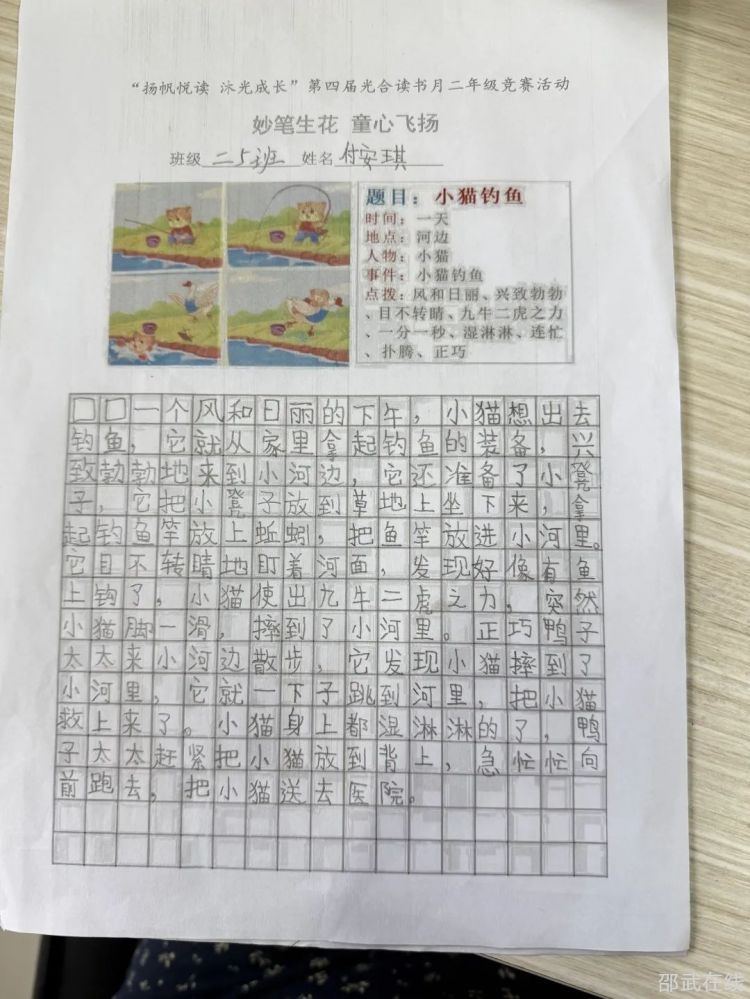 “扬帆悦读 沐光成长”第四届光合读书月二年级竞赛活动
妙笔生花 童心飞扬
班级 二5班 姓名 付安琪
题目：小猫钓鱼
时间：一天
地点：河边
人物：小猫
事件：小猫钓鱼
点拨：风和日丽、兴致勃勃
、目不转睛、九牛二虎之力
、一分一秒、湿淋淋、连忙
、扑腾、正巧
□□一个风和日丽的下午，小猫想出去
钓鱼，它就从家里拿起钓鱼的装备，兴
致勃勃地来到小河边，它还准备了小凳
子，它把小凳子放到草地上坐下来，拿
起钓鱼竿放上蚯蚓，把鱼竿放进小河里。
它目不转睛地盯着河面，发现好像有鱼
上钩了，小猫使出九牛二虎之力，突然
小猫脚一滑，摔到了小河里。正巧鸭子
太太来小河边散步，它发现小猫摔到了
小河里，它就一下子跳到河里，把小猫
救上来了。小猫身上都湿淋淋的了，鸭
子太太赶紧把小猫放到背上，急忙忙向
前跑去，把小猫送去医院。
邵武在线